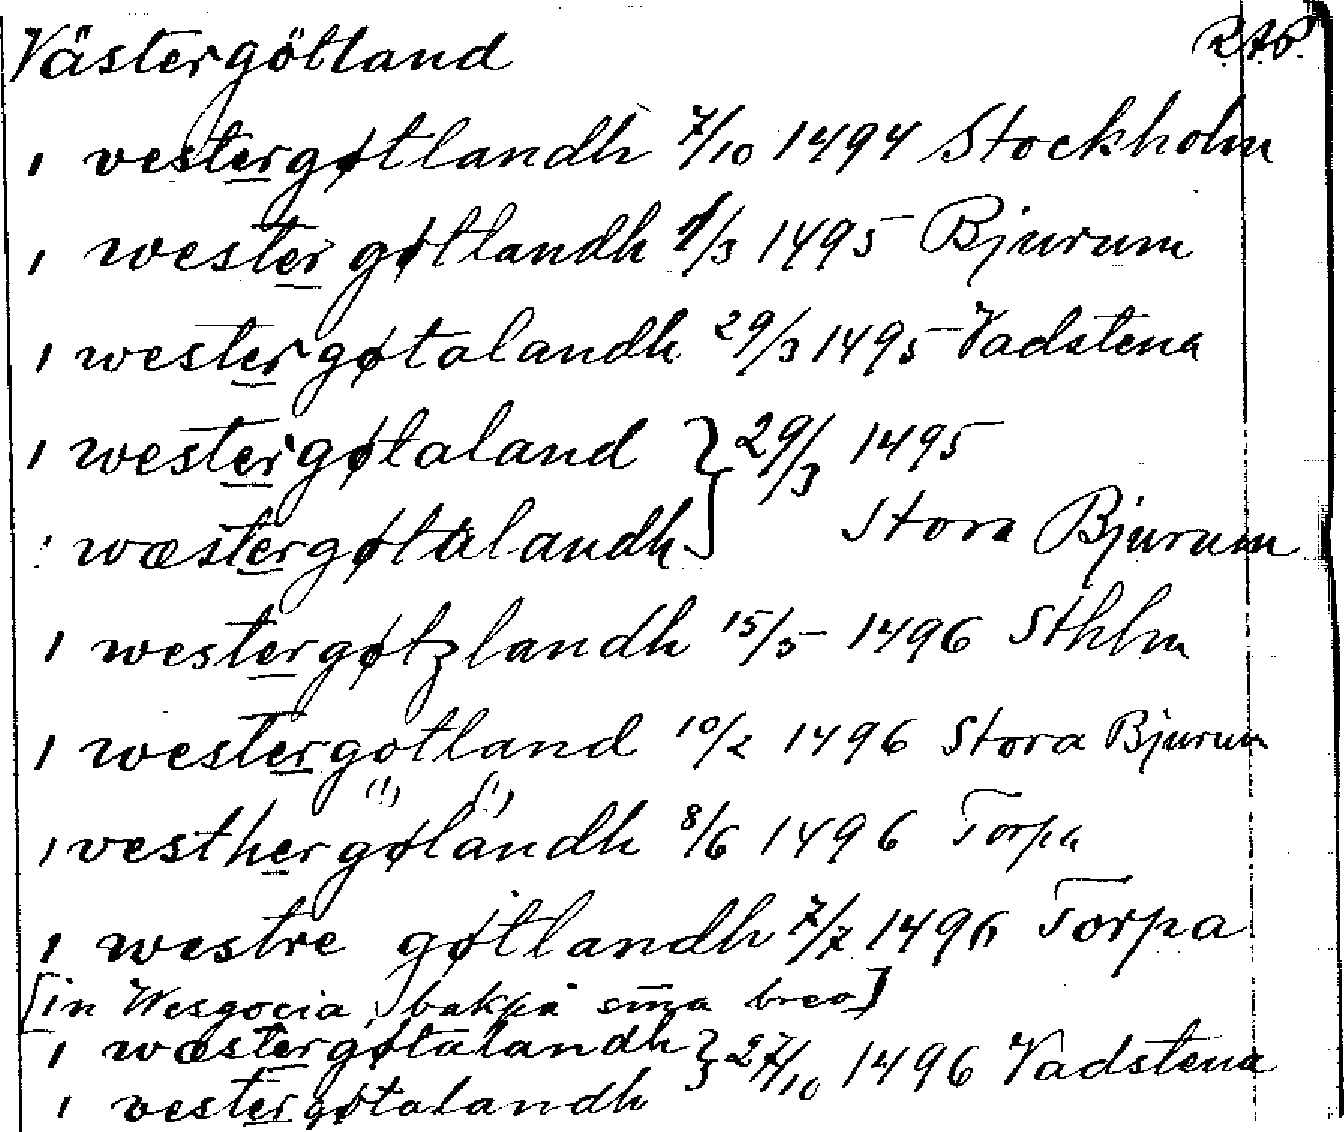 Västergötland RAP.
i vestergøtlandh 7/10 1494 Stockholm
i wester gøtlandh 9/3 1495 Bjurum
i westergøtalandh 29/3 1495 Vadstena
i westergøtaland } 29/3 1495
i wæstergøtalandh } Stora Bjurum
i westergøtzlandh 15/5 1496 Sthlm
i westergotland 10/2 1496 Stora Bjurum
i vesthergøländh 8/6 1496 Torpa
i westre gøtlandh 7/7 1496 Torpa
[in Wesgocia, bakpå sma brev]
i wæstergøtalandh } 27/10 1496 Vadstena
i vestergøtalandh